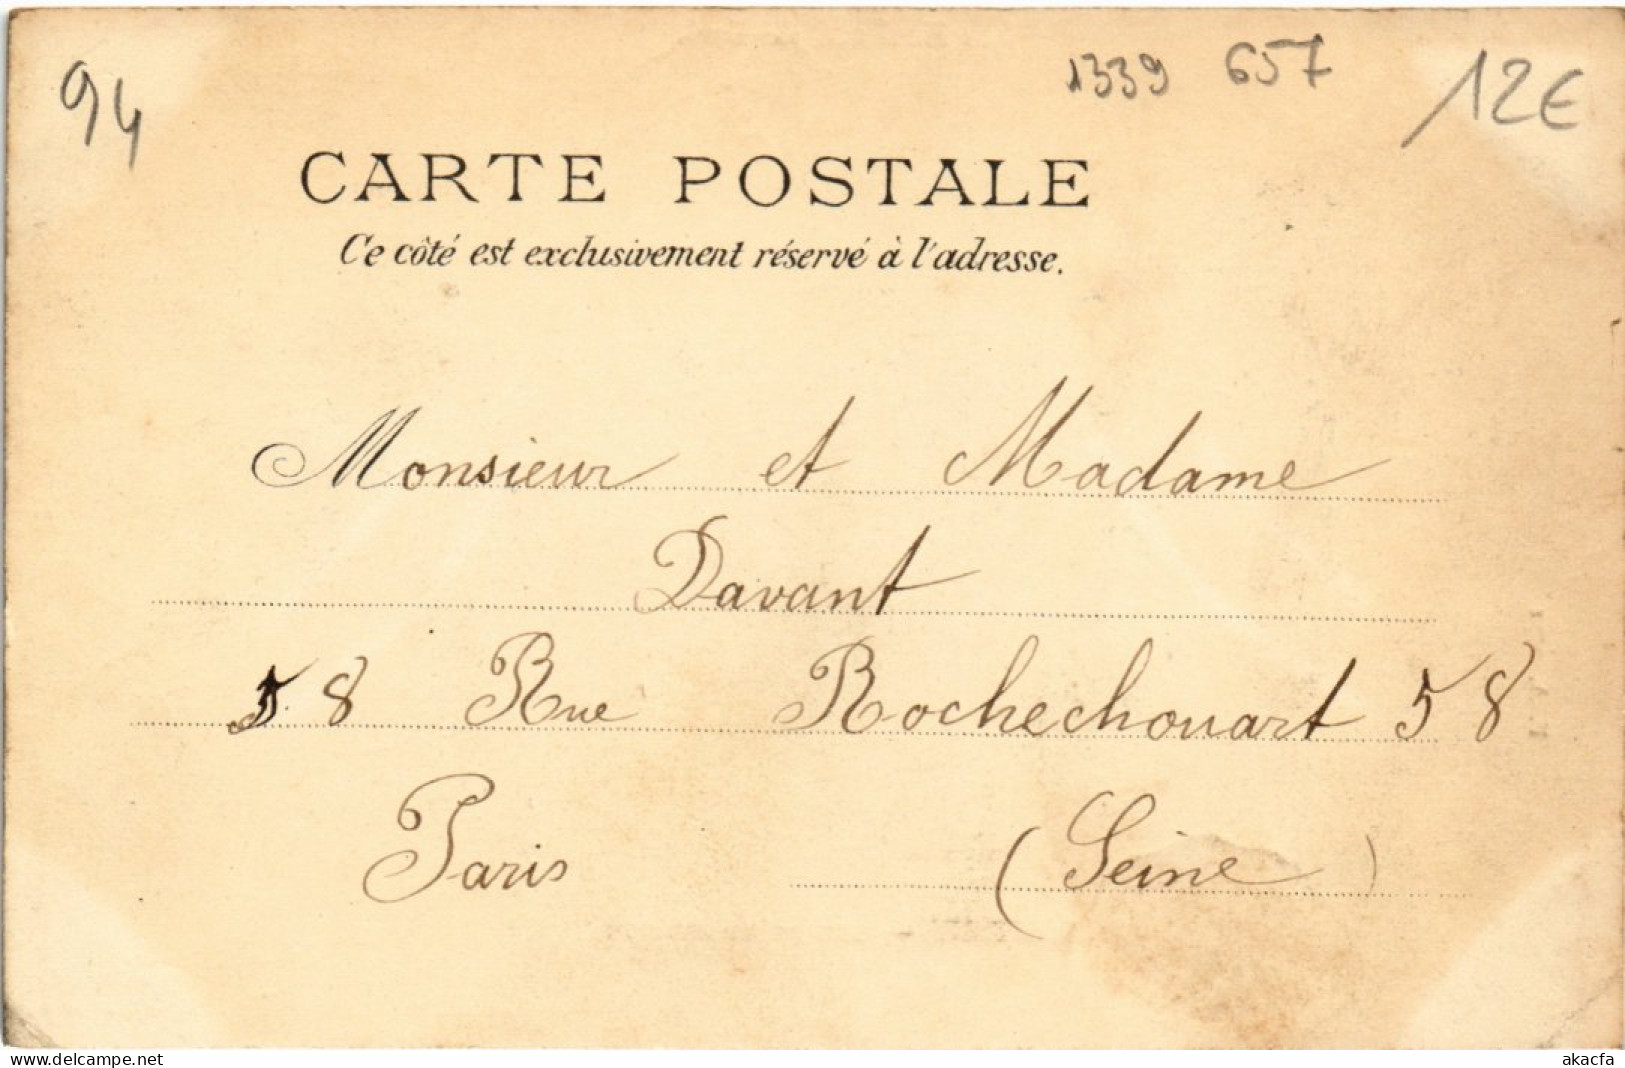 94
1339 657 12€
CARTE POSTALE
Ce côté est exclusivement réservé à l'adresse.
Monsieur et Madame
Davant
58 Rue Rochechouart 58
Paris (Seine)
www.delcampe.net akacfa